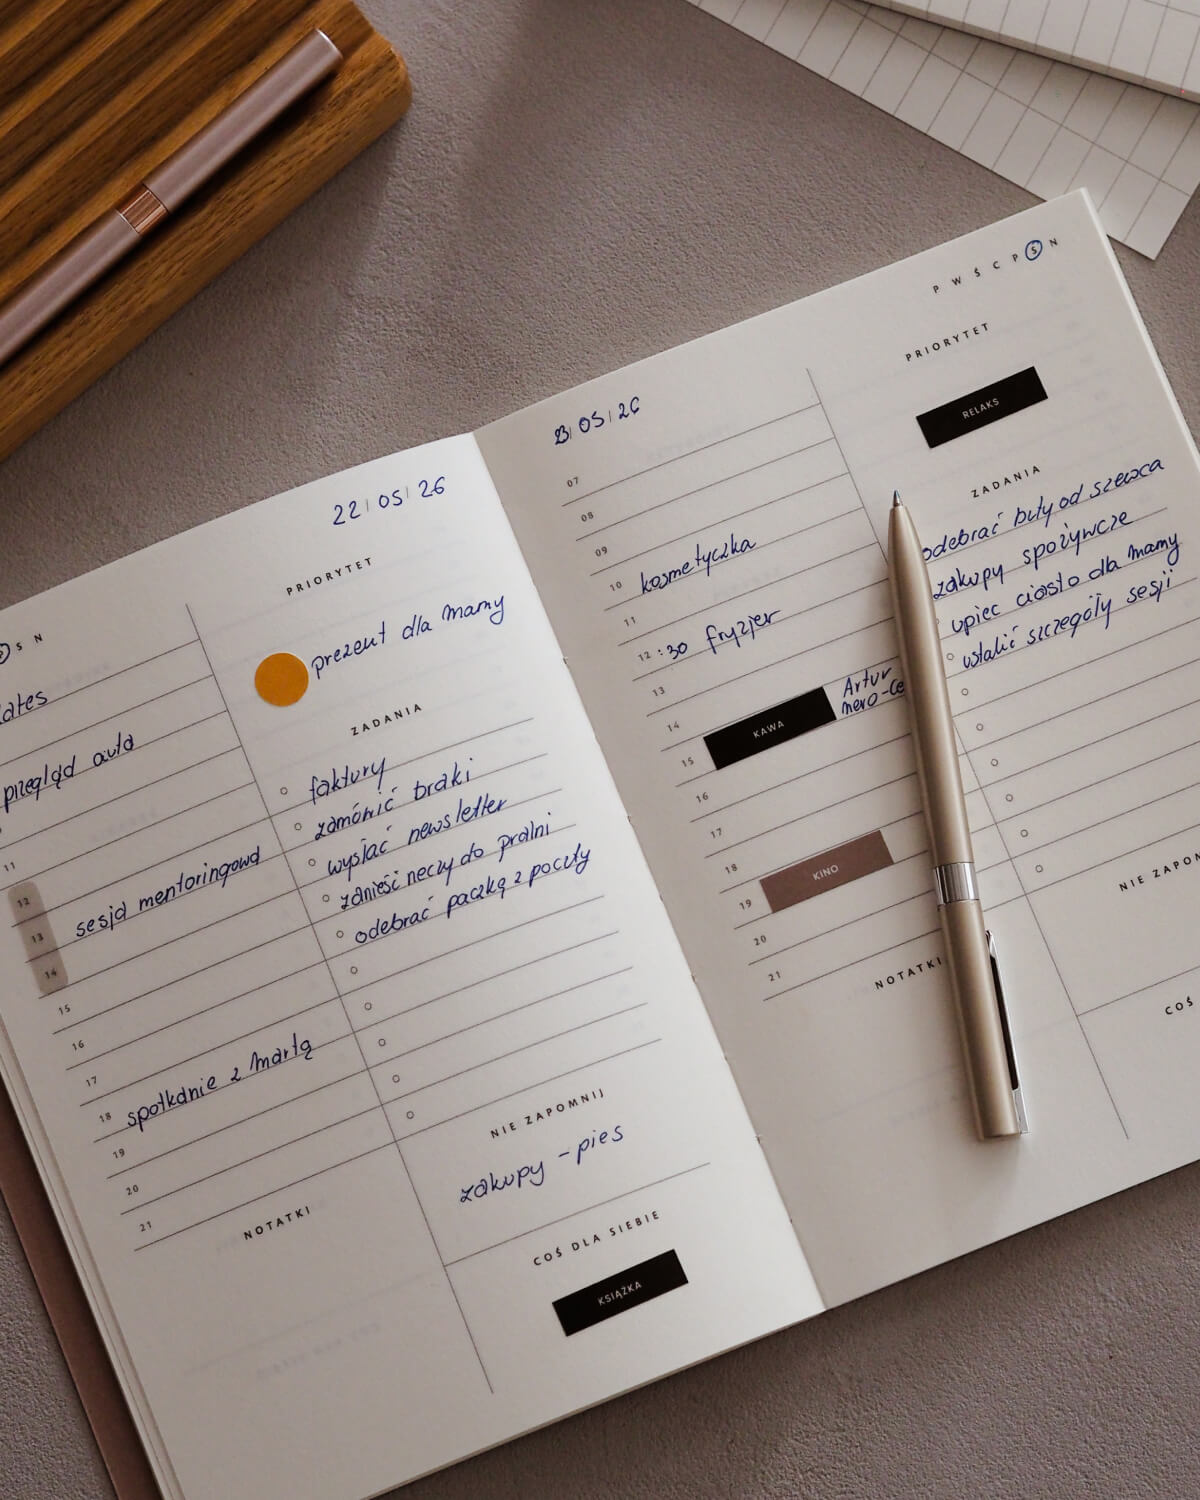 S N
przegląd auta
11
12
sesja mentoringowa
13
14
15
16
17
18 spotkanie z Martą
19
20
21
NOTATKI
22 05 26
PRIORYTET
prezent dla mamy
ZADANIA
faktury
zamówić braki
wysłać newsletter
zanieść rzeczy do pralni
odebrać paczkę z poczty
NIE ZAPOMNIJ
zakupy - pies
COŚ DLA SIEBIE
KSIĄŻKA
23 05 26
07
08
09
10 kosmetyczka
11
12 :30 fryzjer
13
14
KAWA
Artur
15
16
17
18
KINO
19
20
21
NOTATKI
P W Ś C P S N
PRIORYTET
RELAKS
ZADANIA
odebrać buty od szewca
zakupy spożywcze
upiec ciasto dla mamy
ustalić szczegóły sesji
NIE ZAPOM
COŚ